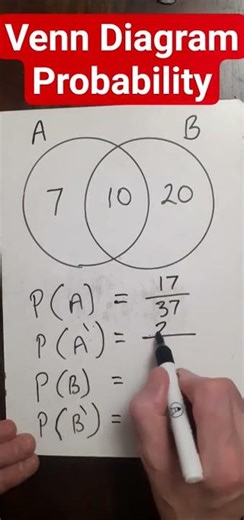 Venn Diagram
Probability
A B
7 10 20
P(A) = 17/37
P(A') = 2
P(B) =
P(B') =